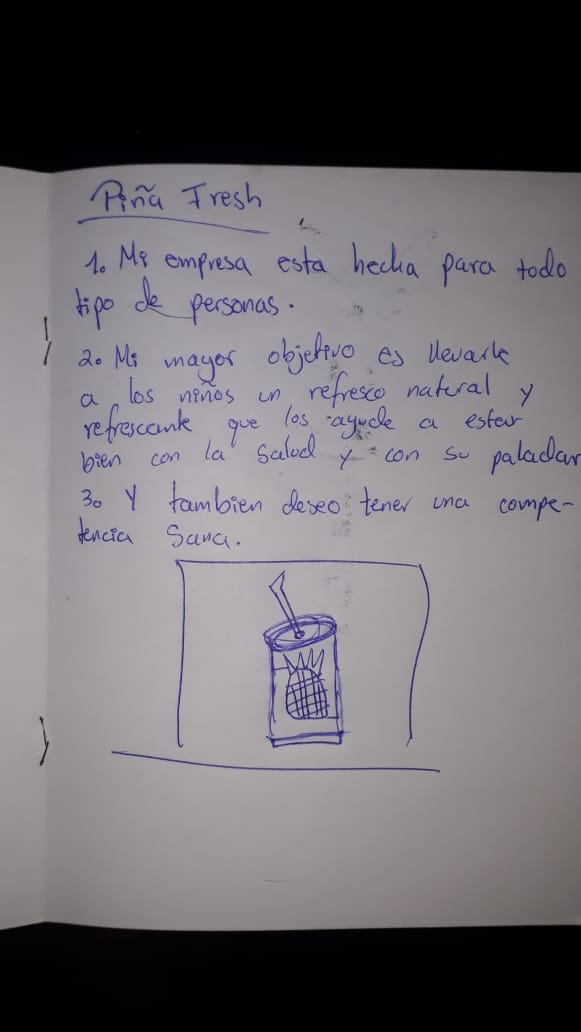 Piña Fresh
1. Mi empresa esta hecha para todo
tipo de personas.
2. Mi mayor objetivo es llevarle
a los niños un refresco natural y
refrescante que los ayude a estar
bien con la salud y con su paladar
3. Y tambien deseo tener una compe-
tencia Sana.